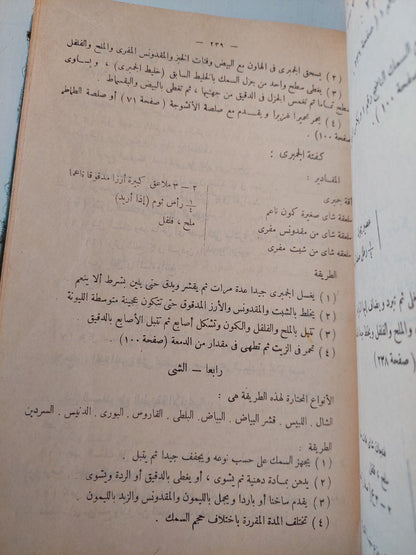 — ٢٣٩ —
(٢) يسحق الجمبرى فى الهاون مع البيض وفتات الخبز والمقدونس المفرى والملح والفلفل
(٣) يغطى سطح واحد من جزل السمك بالخليط السابق (خليط الجمبرى) ، ويساوى
سطح تماما ثم تغمس الجزل فى الدقيق من جهتيها ، ثم تغطى بالبيض والبقسماط .
(٤) يحمر تحميرا غزيرا ويقدم مع صلصة الأنشوجة (صفحة ٧١) أو صلصة الطماطم
(صفحة ١٠٠) .
كفتة الجمبرى :
المقادير :
أقة جمبرى
ملعقة شاى صغيرة كمون ناعم
ملعقة شاى من مقدونس مفرى
ملعقة شاى من شبت مفرى
٢ – ٣ ملاعق كبيرة أرزا مدقوقا ناعما
¼ رأس ثوم (إذا أريد)
ملح ، فلفل
الطريقة
(١) يغسل الجمبرى جيدا عدة مرات ثم يقشر ويدق حتى يلين بشرط ألا ينعم
(٢) يخلط بالشبت والمقدونس والأرز المدقوق حتى تتكون عجينة متوسطة الليونة
(٣) تتبل بالملح والفلفل والكمون وتشكل أصابع ثم تتبل الأصابع بالدقيق
(٤) تحمر فى الزيت ثم تطهى فى مقدار من الدمعة (صفحة ١٠٠) .
رابعا — الشى
الأنواع المختارة لهذه الطريقة هى :
الشال . اللبيس . قشر البياض . البياض . البلطى . القاروس . البورى . الدنيس . السردين
الطريقة :
(١) يجهز السمك على حسب نوعه ويجفف جيدا ثم يتبل .
(٢) يدهن بمادة دهنية ثم يشوى ، أو يغطى بالدقيق أو الردة ويشوى
(٣) يقدم ساخنا أو باردا ويجمل بالليمون والمقدونس والزبد بالليمون
(٤) تختلف المدة المقررة باختلاف حجم السمك .